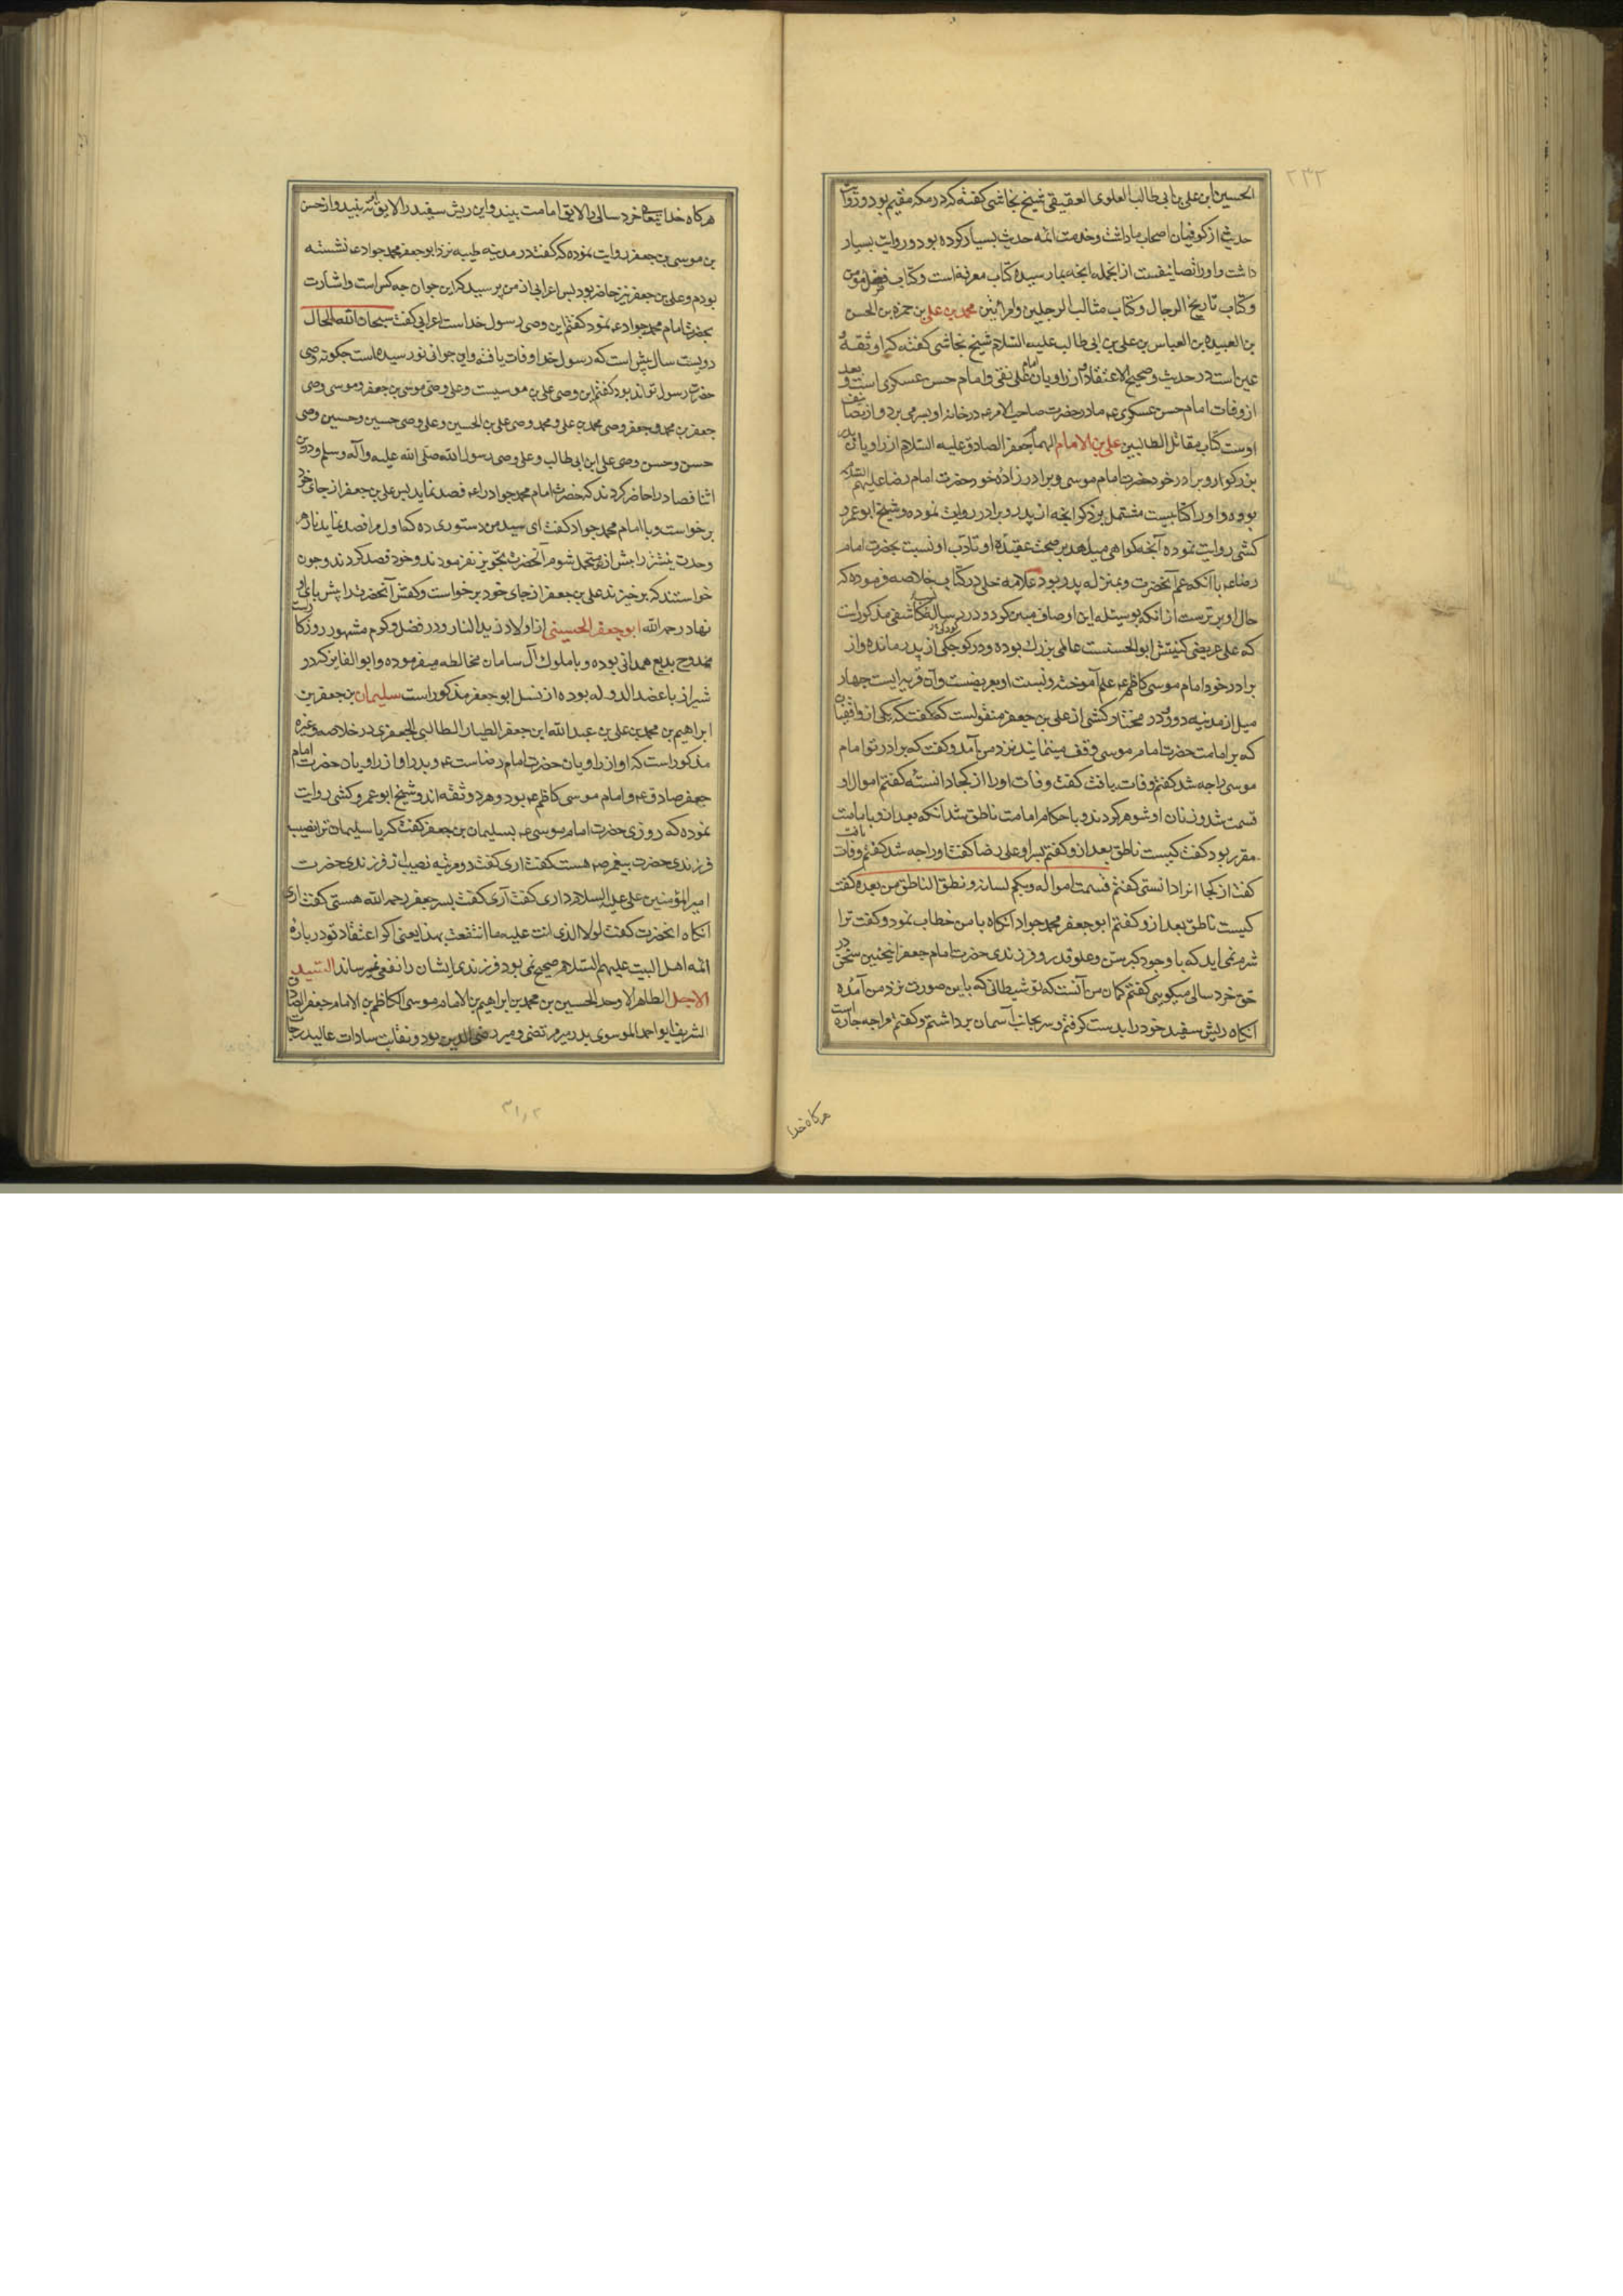 ۲۳۲
الحسین ابن علی بن ابی طالب العلوی العقیقی شیخ نجاشی کفته که در مکه مقیم بود و روایت
حدیث از کوفیان اصحاب ما داشت و خدمت ائمه حدیث بسیار کرده بود و روایت بسیار
داشت و او را تصانیفست از انجمله انچه بما رسیده کتاب معرفة است و کتاب فضل مؤمن
و کتاب تاریخ الرجال و کتاب مثالب الرجلین والمراتین محمد بن علی بن حمزه بن الحسن
بن العبیده بن العباس بن علی بن ابی طالب علیه السلام شیخ نجاشی کفته که او ثقة
عین است در حدیث و صحیح الاعتقاد از راویان امام علی نقی و امام حسن عسکری است و بعد
از وفات امام حسن عسکری ع مادر حضرت صاحب الامر ع در خانه او بسر می برد و از تصانیف
اوست کتاب مقاتل الطالبیین علی بن الامام الهمام جعفر الصادق علیه السلام از راویان پدر
بزرکوار و برادر خود حضرت امام موسی و برادر زاده خود حضرت امام رضا علیهم السلام
بوده و او را کتابیست مشتمل بر ذکر انچه از پدر و برادر روایت نموده و شیخ ابو عمرو
کشی روایت نموده آنچه کواهی میدهد بر صحت عقیده او و تادب او نسبت بحضرت امام
رضا ع با آنکه عم آنحضرت و بمنزله پدر بود علامه حلی در کتاب خلاصه فرموده که
حال او برترست از انکه بوسیله این اوصاف مبین کردد و در رساله کاشفی مذکورات
که علی عریضی کنیتش ابوالحسنست عالمی بزرك بوده و در کوچکی از پدر مانده و از
برادر خود امام موسی کاظم ع علم آموخته و نسبت او بعریضست و آن قریه ایست چهار
میل از مدینه دور و در مختار کشی از علی بن جعفر منقولست که کفت که یکی از واقفیان
که بر امامت حضرت امام موسی وقف مینمایند نزد من آمد و کفت که برادر تو امام
موسی را چه شد کفتم وفات یافت کفت وفات او را از کجا دانسته کفتم اموال او
قسمت شد و زنان او شوهر کردند و باحکام امامت ناطق شد انکه بعد از و بامامت
مقرر بود کفت کیست ناطق بعد از و کفتم پسر او علی رضا کفت او را چه شد کفتم وفات یافت
کفت از کجا انرا دانستی کفتم قسمت امواله و نکح نسائه و نطق الناطق من بعده کفت
کیست ناطق بعد از و کفتم ابو جعفر محمد جواد آنکاه با من خطاب نمود و کفت ترا
شرم نمی آید که با وجود کبر سن و علو قدر و فرزندی حضرت امام جعفر اینچنین سخن در
حق خرد سالی میکویی کفتم کمان من آنست که تو شیطانی که باین صورت نزد من آمده
آنکاه ریش سفید خود را بدست کرفتم و سر بجانب آسمان برداشتم و کفتم مرا چه چاره است
هرکاه خدا
هرکاه خدا یتعالی خرد سالی را لایق امامت بیند و این ریش سفید را لایق آن نه بیند و از حسن
بن موسی بن جعفر روایت نموده که کفت در مدینه طیبه نزد ابو جعفر محمد جواد ع نشسته
بودم و علی بن جعفر نیز حاضر بود پس اعرابی از من پرسید که این جوان چه کس است و اشارت
بحضرت امام محمد جواد ع نمود کفتم این وصی رسول خداست اعرابی کفت سبحان الله الحال
دویست سال پیش است که رسول خدا وفات یافته و این جوانی نورسیده است چکونه وصی
حضرت رسول تواند بود کفتم این وصی علی بن موسیست و علی وصی موسی بن جعفر و موسی وصی
جعفر بن محمد و جعفر وصی محمد بن علی و محمد وصی علی بن الحسین و علی وصی حسین و حسین وصی
حسن و حسن وصی علی ابن ابی طالب و علی وصی رسول الله صلی الله علیه و آله وسلم و در این
اثنا فصاد را حاضر کردند که حضرت امام محمد جواد را ع فصد نماید پس علی بن جعفر از جای خود
برخواست و با امام محمد جواد کفت ای سید من دستوری ده که اول مرا فصد نماید تا زهر
وحدت نیشتر را پیش از تو متحمل شوم آنحضرت تجویز نفرمودند و خود فصد کردند و چون
خواستند که برخیزند علی بن جعفر از جای خود برخواست و کفش آنحضرت را پیش پای او راست
نهاد رحمه الله ابو جعفر الحسینی از اولاد زید النار و در فضل و کرم مشهور روزکار
ممدوح بدیع همدانی بوده و با ملوك آل سامان مخالطه میفرموده و ابو الفایز که در
شیراز با عضد الدوله بوده از نسل ابو جعفر مذکور است سلیمان بن جعفر بن
ابراهیم بن محمد بن علی بن عبدالله ابن جعفر الطیار الطالبی الجعفری در خلاصه و غیره
مذکور است که او از راویان حضرت امام رضاست ع و پدر او از راویان حضرت امام
جعفر صادق ع و امام موسی کاظم ع بود و هر دو ثقه اند و شیخ ابو عمرو کشی روایت
نموده که روزی حضرت امام موسی ع بسلیمان بن جعفر کفت که یا سلیمان ترا نصیب
فرزندی حضرت پیغمبر ص هست کفت اری کفت دو مرتبه نصیب فرزندی حضرت
امیر المؤمنین علی علیه السلام داری کفت آری کفت پسر جعفر رحمه الله هستی کفت اری
آنکاه انحضرت کفت لولا الذی انت علیه ما انتفعت بهذا یعنی اکر اعتقاد تو در باره
ائمه اهل البیت علیهم السلام صحیح نمی بود فرزندی ایشان ترا نفعی نمیرساند السید
الاجل الطاهر الاوحد الحسین بن محمد بن ابراهیم بن الامام موسی الکاظم بن الامام جعفر الصادق
الشریف ابو احمد الموسوی پدر میر مرتضی و میر رضی الدین بود و نقابت سادات عالیدرجات